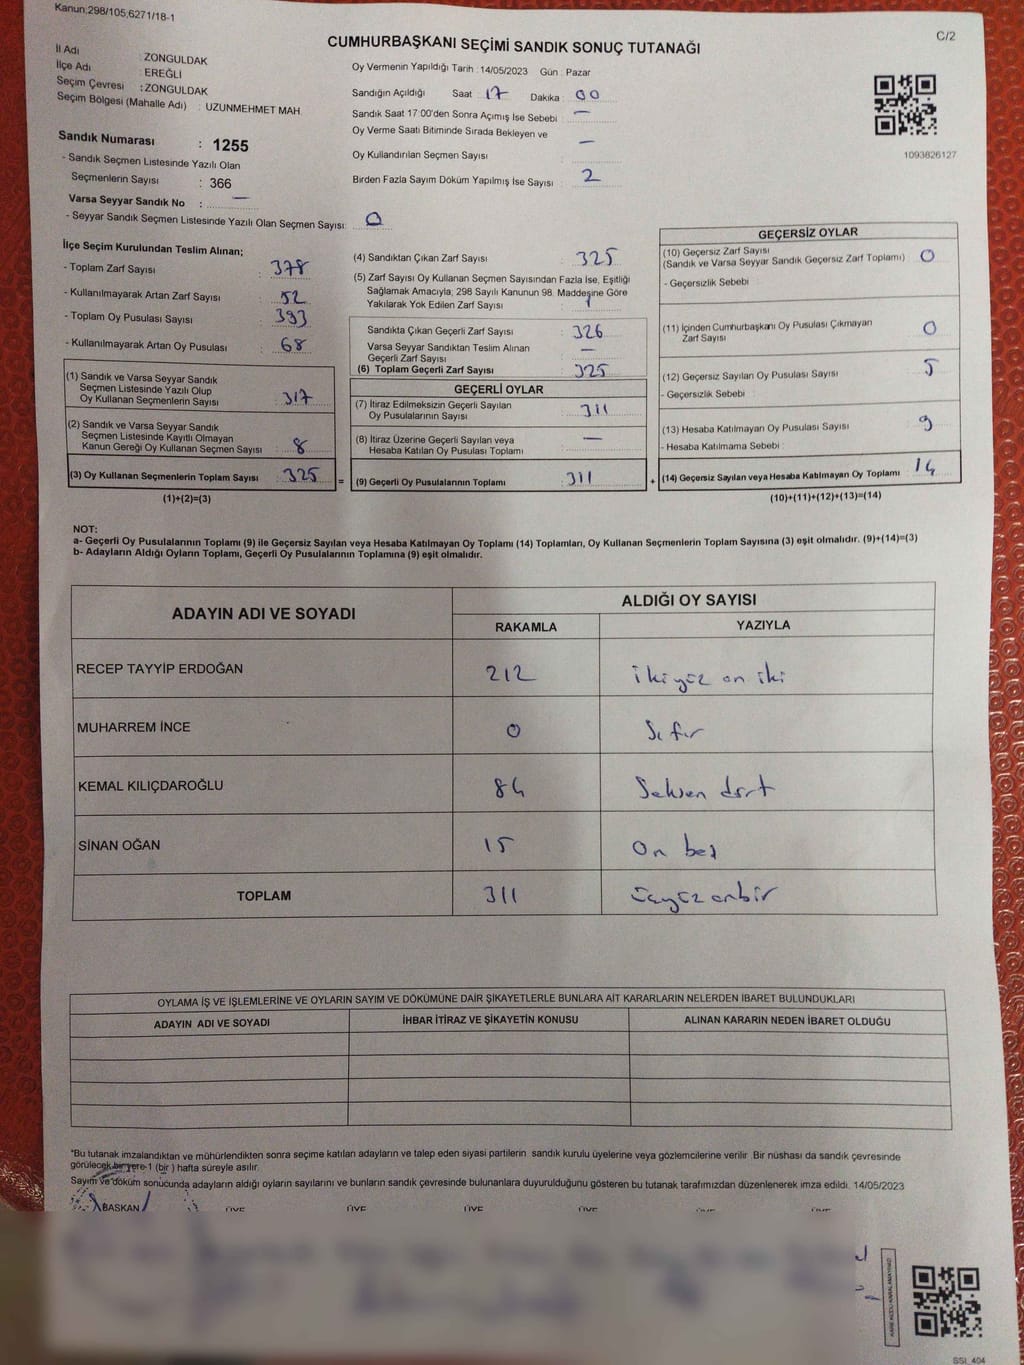 Kanun;298/105;6271/18-1
C/2
CUMHURBAŞKANI SEÇİMİ SANDIK SONUÇ TUTANAĞI
İl Adı : ZONGULDAK
İlçe Adı : EREĞLİ
Seçim Çevresi : ZONGULDAK
Seçim Bölgesi (Mahalle Adı) : UZUNMEHMET MAH.
Sandık Numarası : 1255
- Sandık Seçmen Listesinde Yazılı Olan
Seçmenlerin Sayısı : 366
Varsa Seyyar Sandık No : —
- Seyyar Sandık Seçmen Listesinde Yazılı Olan Seçmen Sayısı: 0
Oy Vermenin Yapıldığı Tarih : 14/05/2023 Gün : Pazar
Sandığın Açıldığı Saat 17 Dakika : 00
Sandık Saat 17:00'den Sonra Açımış İse Sebebi : —
Oy Verme Saati Bitiminde Sırada Bekleyen ve
Oy Kullandırılan Seçmen Sayısı : —
Birden Fazla Sayım Döküm Yapılmış İse Sayısı : 2
1093826127
İlçe Seçim Kurulundan Teslim Alınan;
- Toplam Zarf Sayısı : 378
- Kullanılmayarak Artan Zarf Sayısı : 52
- Toplam Oy Pusulası Sayısı : 393
- Kullanılmayarak Artan Oy Pusulası : 68
(1) Sandık ve Varsa Seyyar Sandık
Seçmen Listesinde Yazılı Olup
Oy Kullanan Seçmenlerin Sayısı : 317
(2) Sandık ve Varsa Seyyar Sandık
Seçmen Listesinde Kayıtlı Olmayan
Kanun Gereği Oy Kullanan Seçmen Sayısı : 8
(3) Oy Kullanan Seçmenlerin Toplam Sayısı : 325 =
(1)+(2)=(3)
(4) Sandıktan Çıkan Zarf Sayısı : 325
(5) Zarf Sayısı Oy Kullanan Seçmen Sayısından Fazla İse, Eşitliği
Sağlamak Amacıyla; 298 Sayılı Kanunun 98. Maddesine Göre
Yakılarak Yok Edilen Zarf Sayısı : 1
Sandıkta Çıkan Geçerli Zarf Sayısı : 326
Varsa Seyyar Sandıktan Teslim Alınan
Geçerli Zarf Sayısı : —
(6) Toplam Geçerli Zarf Sayısı : 325
GEÇERLİ OYLAR
(7) İtiraz Edilmeksizin Geçerli Sayılan
Oy Pusulalarının Sayısı : 311
(8) İtiraz Üzerine Geçerli Sayılan veya
Hesaba Katılan Oy Pusulası Toplamı : —
(9) Geçerli Oy Pusulalarının Toplamı : 311 +
GEÇERSİZ OYLAR
(10) Geçersiz Zarf Sayısı
(Sandık ve Varsa Seyyar Sandık Geçersiz Zarf Toplamı) : 0
- Geçersizlik Sebebi :
(11) İçinden Cumhurbaşkanı Oy Pusulası Çıkmayan
Zarf Sayısı : 0
(12) Geçersiz Sayılan Oy Pusulası Sayısı : 5
- Geçersizlik Sebebi :
(13) Hesaba Katılmayan Oy Pusulası Sayısı : 9
- Hesaba Katılmama Sebebi :
(14) Geçersiz Sayılan veya Hesaba Katılmayan Oy Toplamı : 14
(10)+(11)+(12)+(13)=(14)
NOT:
a- Geçerli Oy Pusulalarının Toplamı (9) ile Geçersiz Sayılan veya Hesaba Katılmayan Oy Toplamı (14) Toplamları, Oy Kullanan Seçmenlerin Toplam Sayısına (3) eşit olmalıdır. (9)+(14)=(3)
b- Adayların Aldığı Oyların Toplamı, Geçerli Oy Pusulalarının Toplamına (9) eşit olmalıdır.
ADAYIN ADI VE SOYADI
ALDIĞI OY SAYISI
RAKAMLA YAZIYLA
RECEP TAYYİP ERDOĞAN 212 ikiyüz on iki
MUHARREM İNCE 0 Sıfır
KEMAL KILIÇDAROĞLU 84 Seksen dört
SİNAN OĞAN 15 On beş
TOPLAM 311 üçyüz onbir
OYLAMA İŞ VE İŞLEMLERİNE VE OYLARIN SAYIM VE DÖKÜMÜNE DAİR ŞİKAYETLERLE BUNLARA AİT KARARLARIN NELERDEN İBARET BULUNDUKLARI
ADAYIN ADI VE SOYADI İHBAR İTİRAZ VE ŞİKAYETİN KONUSU ALINAN KARARIN NEDEN İBARET OLDUĞU
*Bu tutanak imzalandıktan ve mühürlendikten sonra seçime katılan adayların ve talep eden siyasi partilerin sandık kurulu üyelerine veya gözlemcilerine verilir. Bir nüshası da sandık çevresinde
görülecek bir yere 1 (bir) hafta süreyle asılır.
Sayım ve döküm sonucunda adayların aldığı oyların sayılarını ve bunların sandık çevresinde bulunanlara duyurulduğunu gösteren bu tutanak tarafımızdan düzenlenerek imza edildi. 14/05/2023
BAŞKAN ÜYE ÜYE ÜYE ÜYE ÜYE ÜYE
KARE KODU KARALAMAYINIZ!
SSİ_404